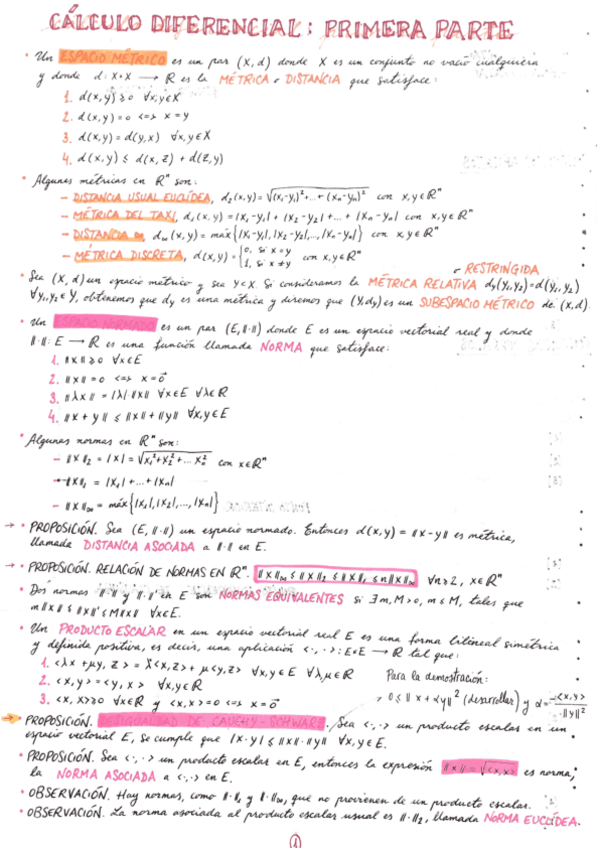 CÁLCULO DIFERENCIAL: PRIMERA PARTE
• Un ESPACIO MÉTRICO es un par (X, d) donde X es un conjunto no vacío cualquiera
y donde d: X×X → R es la MÉTRICA o DISTANCIA que satisface:
1. d(x,y) ≥ 0 ∀x,y∈X
2. d(x,y) = 0 <=> x = y
3. d(x,y) = d(y,x) ∀x,y∈X
4. d(x,y) ≤ d(x,z) + d(z,y)
• Algunas métricas en Rⁿ son:
– DISTANCIA USUAL EUCLÍDEA, d₂(x,y) = √(x₁-y₁)²+...+(xₙ-yₙ)² con x,y∈Rⁿ
– MÉTRICA DEL TAXI, d₁(x,y) = |x₁-y₁| + |x₂-y₂| +...+ |xₙ-yₙ| con x,y∈Rⁿ
– DISTANCIA ∞, d∞(x,y) = máx{|x₁-y₁|, |x₂-y₂|,..., |xₙ-yₙ|} con x,y∈Rⁿ
– MÉTRICA DISCRETA, d(x,y) = {0, si x=y 1, si x≠y con x,y∈Rⁿ
o RESTRINGIDA
• Sea (X, d) un espacio métrico y sea Y⊂X. Si consideramos la MÉTRICA RELATIVA dy(y₁,y₂)=d(y₁,y₂)
∀y₁,y₂∈Y, obtenemos que dy es una métrica y diremos que (Y,dy) es un SUBESPACIO MÉTRICO de (X,d).
• Un ESPACIO NORMADO es un par (E, ‖·‖) donde E es un espacio vectorial real y donde
‖·‖: E → R es una función llamada NORMA que satisface:
1. ‖x‖ ≥ 0 ∀x∈E
2. ‖x‖ = 0 <=> x = 0⃗
3. ‖λx‖ = |λ|·‖x‖ ∀x∈E ∀λ∈R
4. ‖x + y‖ ≤ ‖x‖ + ‖y‖ ∀x,y∈E
• Algunas normas en Rⁿ son:
– ‖x‖₂ = |x| = √x₁²+x₂²+...xₙ² con x∈Rⁿ
– ‖x‖₁ = |x₁| +...+ |xₙ|
– ‖x‖∞ = máx{|x₁|, |x₂|,..., |xₙ|}
→ • PROPOSICIÓN. Sea (E, ‖·‖) un espacio normado. Entonces d(x,y) = ‖x-y‖ es métrica,
llamada DISTANCIA ASOCIADA a ‖·‖ en E.
→ • PROPOSICIÓN. RELACIÓN DE NORMAS EN Rⁿ. ‖x‖∞ ≤ ‖x‖₂ ≤ ‖x‖₁ ≤ n‖x‖∞ ∀n≥2, x∈Rⁿ
• Dos normas ‖·‖ y ‖·‖' en E son NORMAS EQUIVALENTES si ∃ m,M>0, m≤M, tales que
m‖x‖ ≤ ‖x‖' ≤ M‖x‖ ∀x∈E.
• Un PRODUCTO ESCALAR en un espacio vectorial real E es una forma bilineal simétrica
y definida positiva, es decir, una aplicación <·,·>: E×E → R tal que:
1. <λx + μy, z> = λ<x,z> + μ<y,z> ∀x,y∈E ∀λ,μ∈R
Para la demostración:
2. <x,y> = <y,x> ∀x,y∈R
3. <x,x> ≥ 0 ∀x∈R y <x,x> = 0 <=> x = 0⃗
→ 0 ≤ ‖x + αy‖² (desarrollar) y α = -<x,y> / ‖y‖²
→ PROPOSICIÓN. DESIGUALDAD DE CAUCHY-SCHWARZ. Sea <·,·> un producto escalar en un
espacio vectorial E, se cumple que |x·y| ≤ ‖x‖·‖y‖ ∀x,y∈E.
• PROPOSICIÓN. Sea <·,·> un producto escalar en E, entonces la expresión ‖x‖ = √<x,x> es norma,
la NORMA ASOCIADA a <·,·> en E.
• OBSERVACIÓN. Hay normas, como ‖·‖₁ y ‖·‖∞, que no provienen de un producto escalar.
• OBSERVACIÓN. La norma asociada al producto escalar usual es ‖·‖₂, llamada NORMA EUCLÍDEA.
1